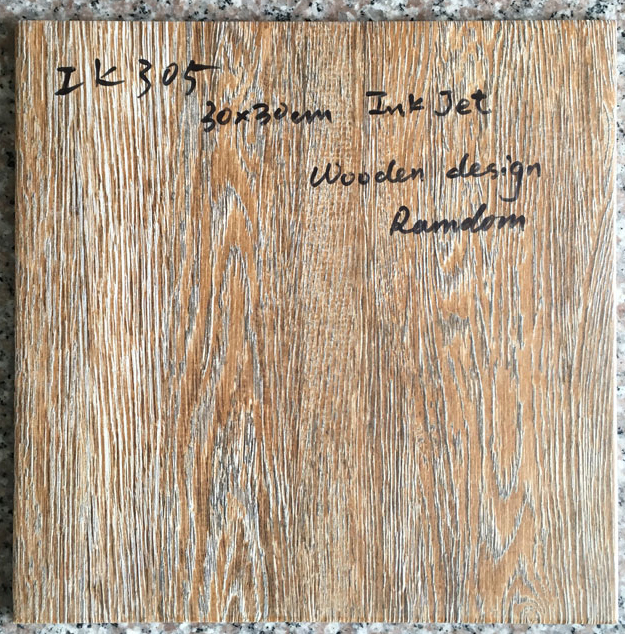 IK305
30x30cm Ink Jet
Wooden design
Ramdom